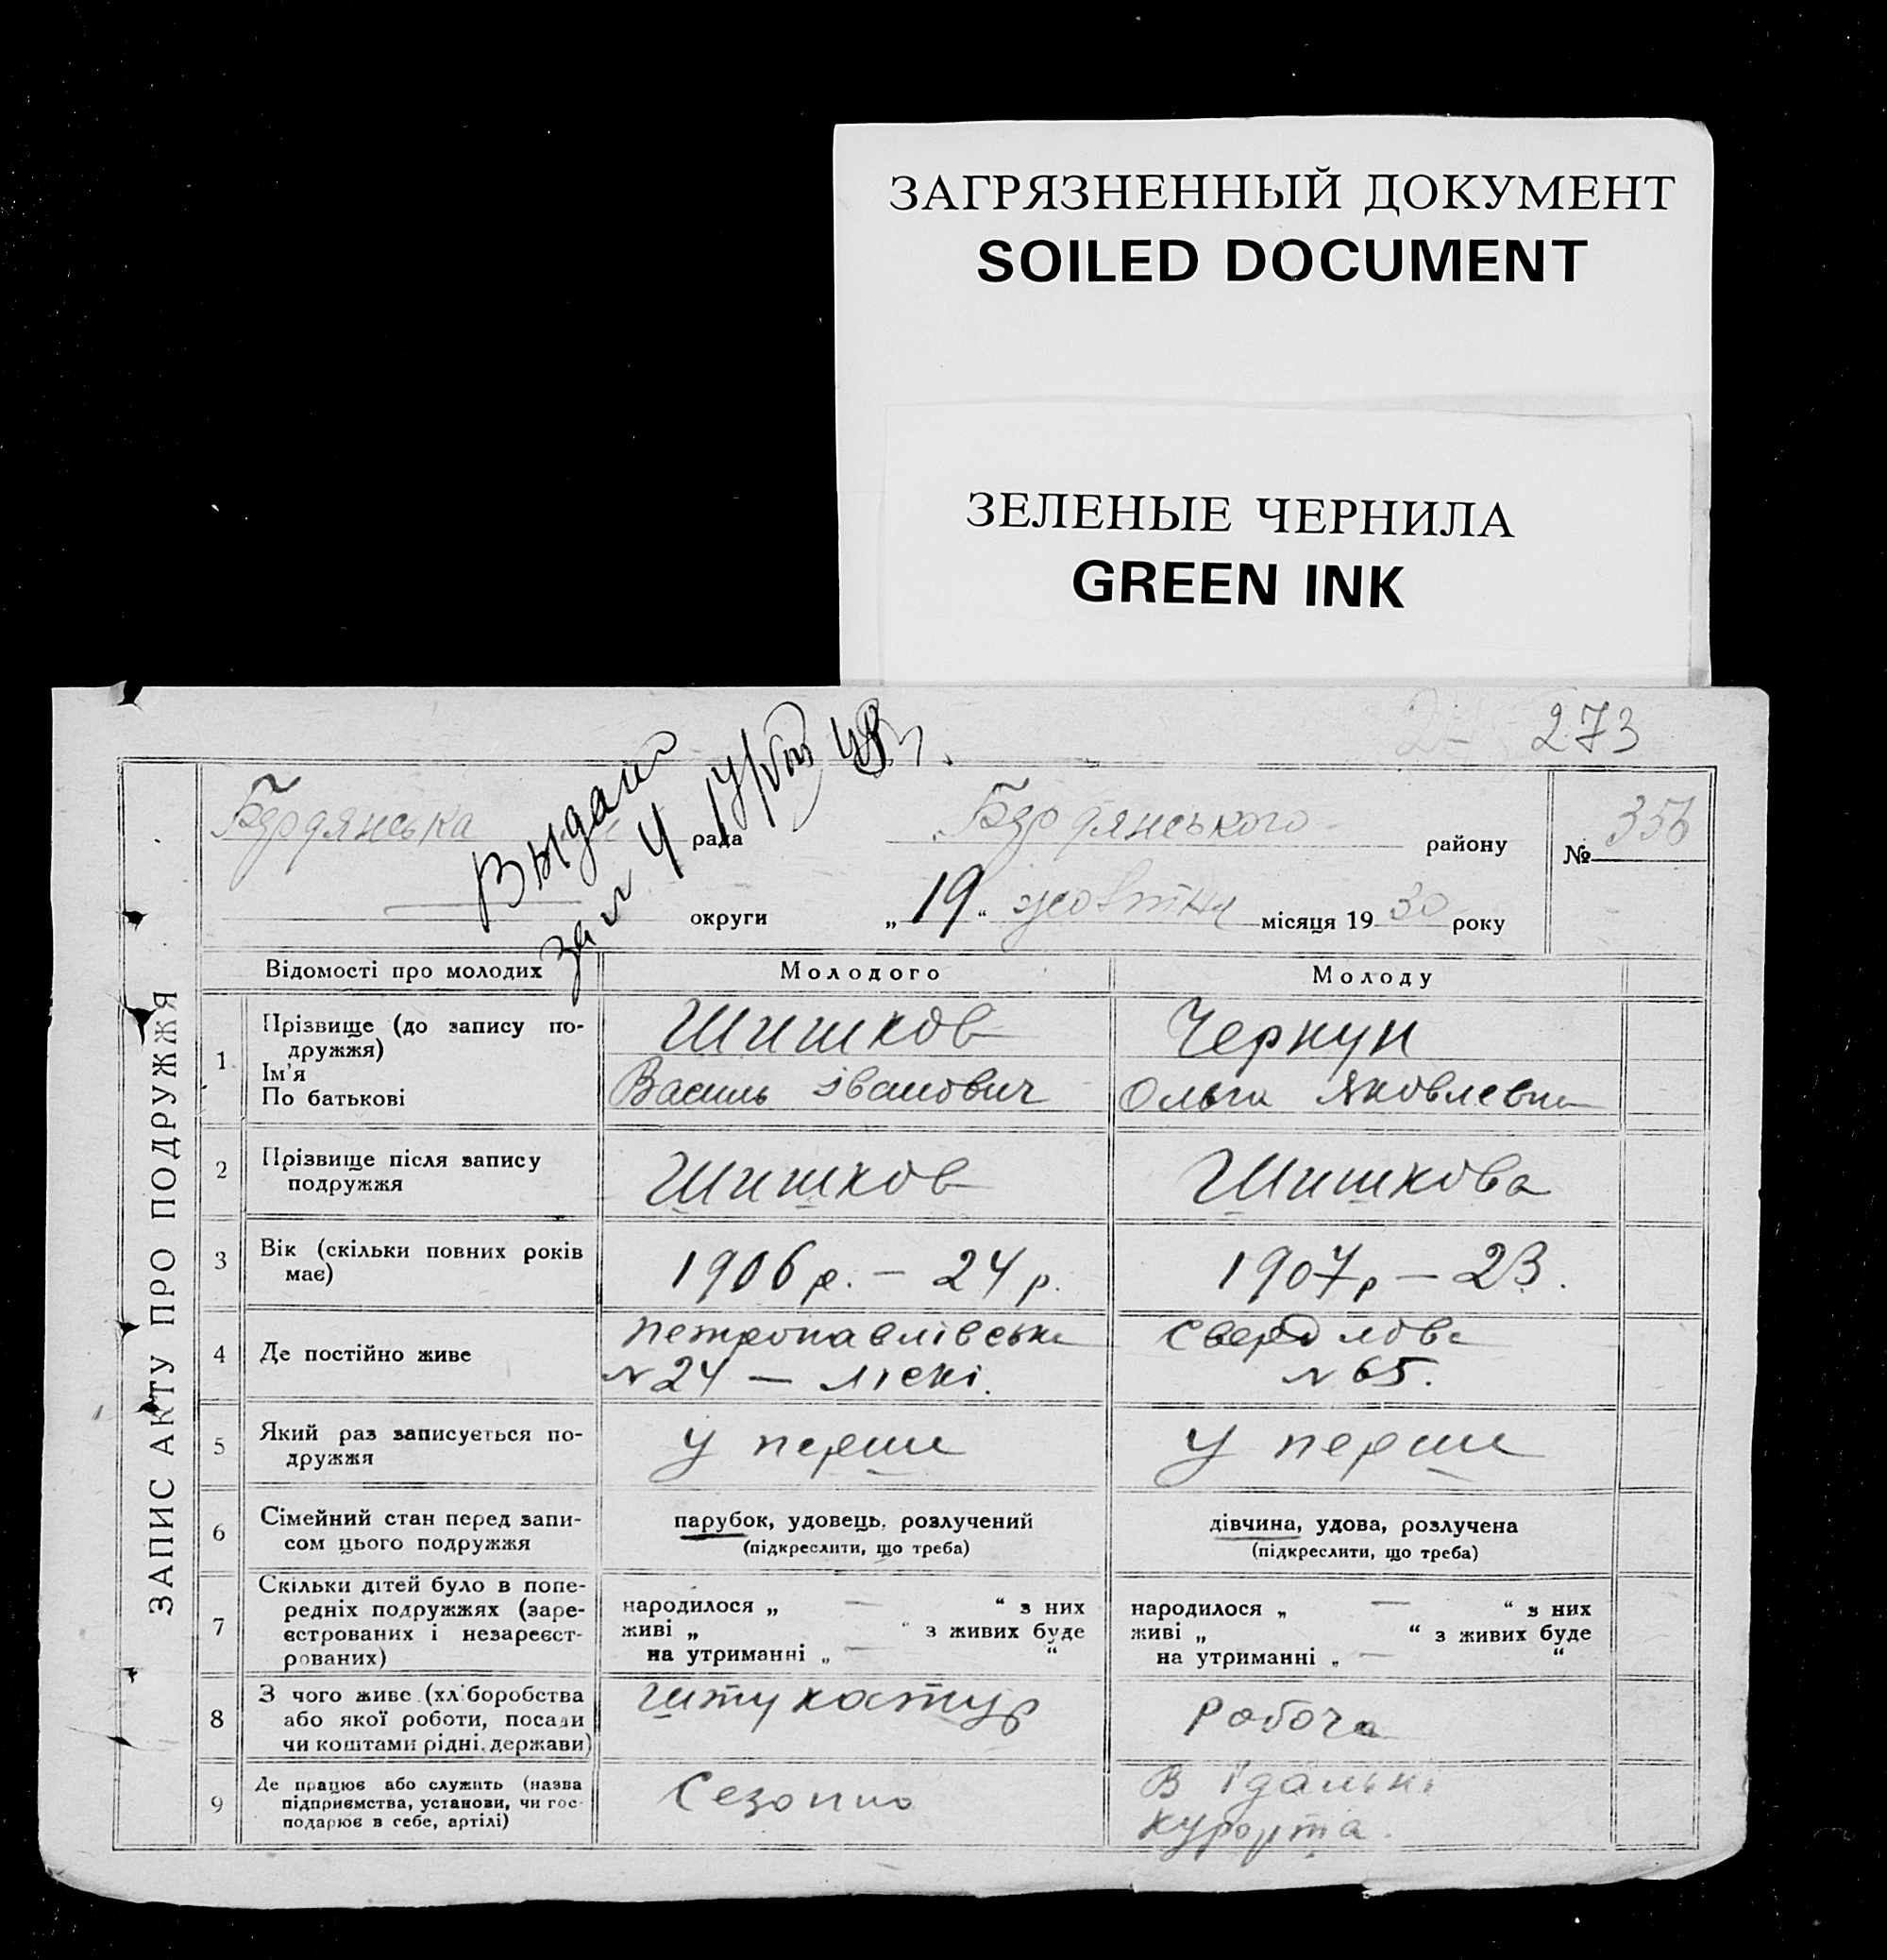 ЗАГРЯЗНЕННЫЙ ДОКУМЕНТ
SOILED DOCUMENT
ЗЕЛЕНЫЕ ЧЕРНИЛА
GREEN INK
273
Выдан
Бердянська рада
Бердянського району
№ 356
округи
„19“ жовтня місяця 1930 року
ЗАПИС АКТУ ПРО ПОДРУЖЖЯ
Відомості про молодих
Молодого
Молоду
1
Прізвище (до запису по-
дружжя)
Ім'я
По батькові
Шишков
Василь Іванович
Чернун
Ольга Яковлевна
2
Прізвище після запису
подружжя
Шишков
Шишкова
3
Вік (скільки повних років
має)
1906 р. — 24 р.
1907 р — 23.
4
Де постійно живе
Петропавлівська
№ 24 — Ліскі.
Свердлова
№ 65.
5
Який раз записується по-
дружжя
У перше
У перше
6
Сімейний стан перед запи-
сом цього подружжя
парубок, удовець, розлучений
(підкреслити, що треба)
дівчина, удова, розлучена
(підкреслити, що треба)
7
Скільки дітей було в попе-
редніх подружжях (заре-
єстрованих і незареєст-
рованих)
народилося „ — “ з них
живі „ “ з живих буде
на утриманні „ — “
народилося „ — “ з них
живі „ “ з живих буде
на утриманні „ — “
8
З чого живе (хліборобства
або якої роботи, посади
чи коштами рідні, держави)
Штукатур
Робоча
9
Де працює або служить (назва
підприємства, установи, чи гос-
подарює в себе, артілі)
Сезонно
В їдальні
курорта.